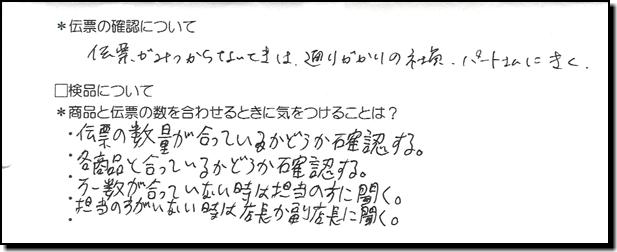 *伝票の確認について
伝票がみつからないときは、通りがかりの社員、パートさんにきく。
□検品について
*商品と伝票の数を合わせるときに気をつけることは?
・伝票の数量が合っているかどうか確認する。
・各商品と合っているかどうか確認する。
・万一数が合っていない時は担当の方に聞く。
担当の方がいない時は店長か副店長に聞く。
・